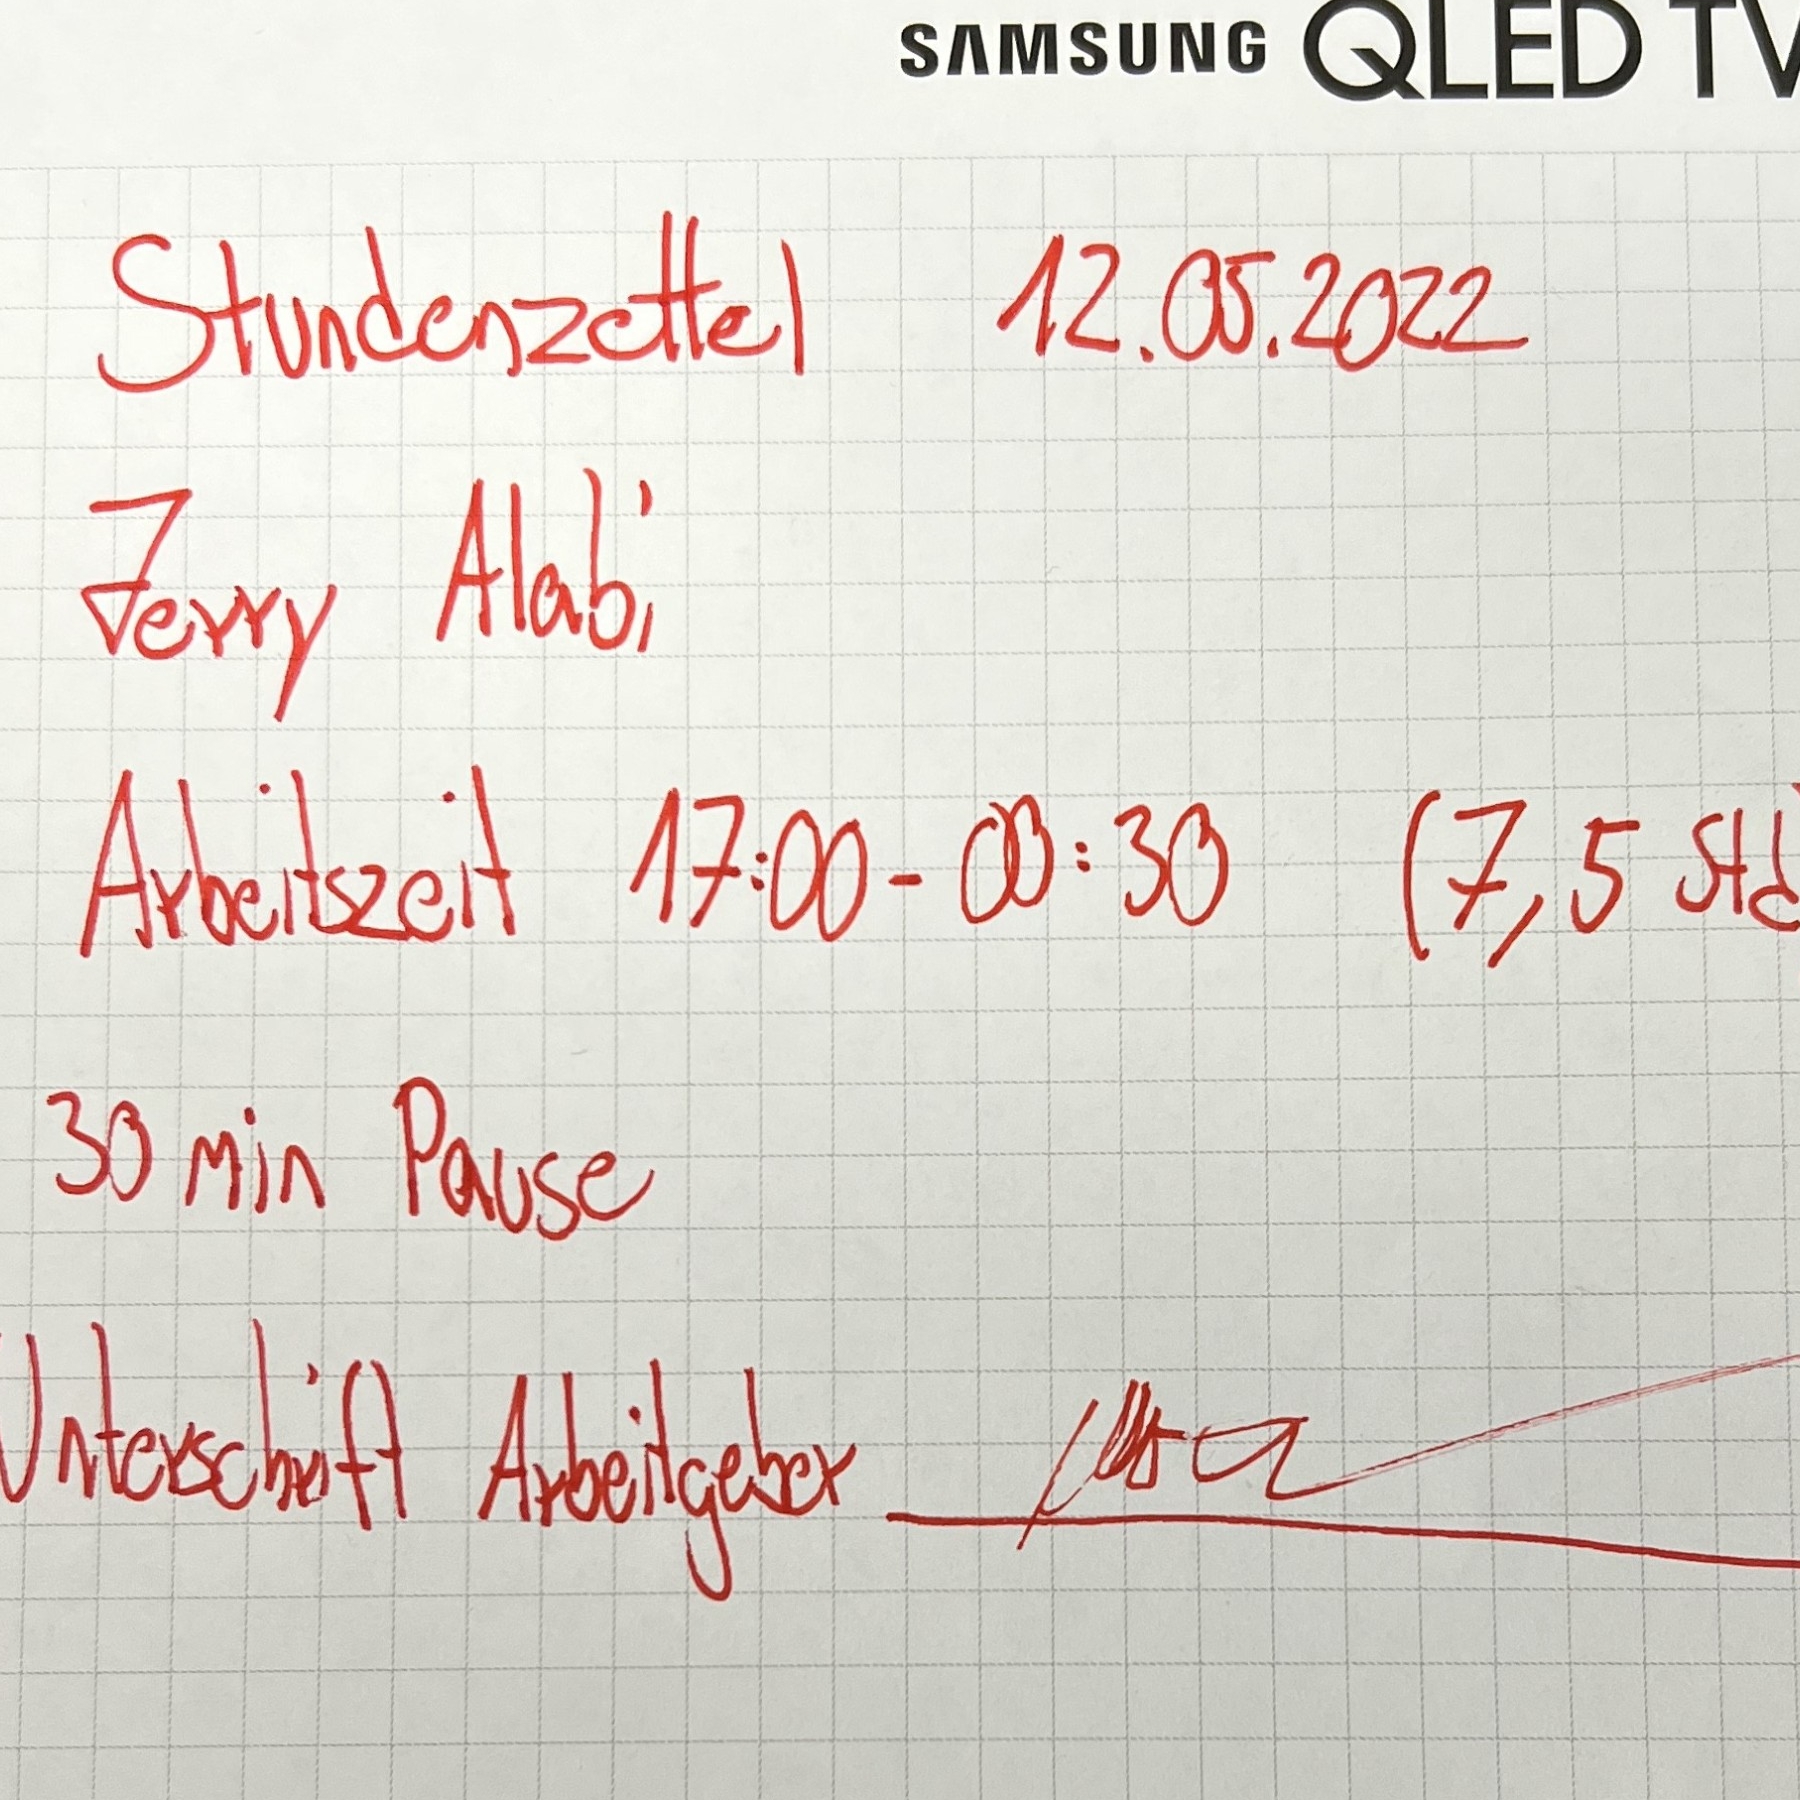 SAMSUNG QLED TV
Stundenzettel 12.05.2022
Jerry Alabi
Arbeitszeit 17:00 - 00:30 (7,5 Std
30 min Pause
Unterschrift Arbeitgeber